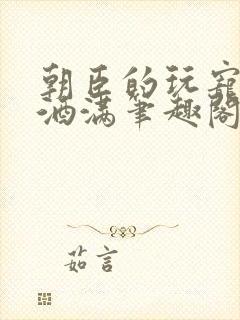 朝臣的玩宠
酒满笔趣阁
茹言